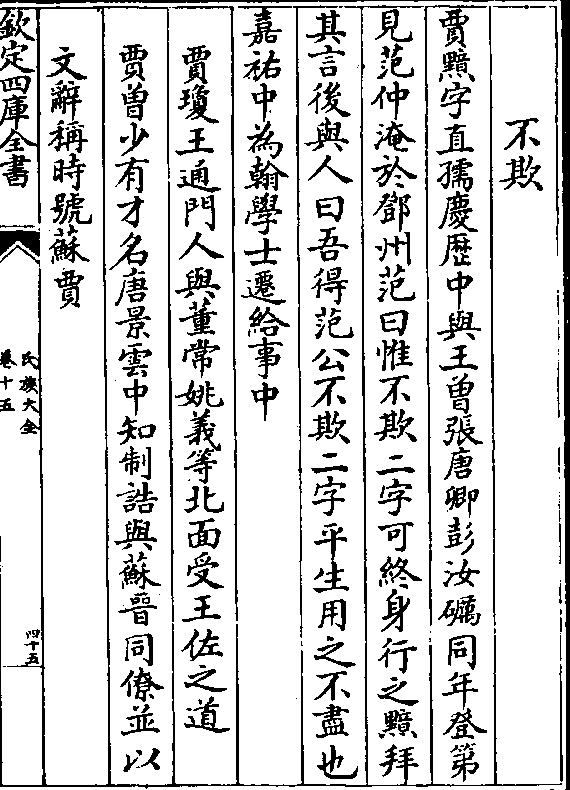 不欺
賈黯字直孺慶歷中與王曾張唐卿彭汝礪同年登第
見范仲淹於鄧州范曰惟不欺二字可終身行之黯拜
其言後與人曰吾得范公不欺二字平生用之不盡也
嘉祐中為翰學士遷給事中
賈瓊王通門人與董常姚義等北面受王佐之道
賈曾少有才名唐景雲中知制誥與蘇晉同僚並以
文辭稱時號蘇賈
欽定四庫全書
氏族大全
卷十五
四十五